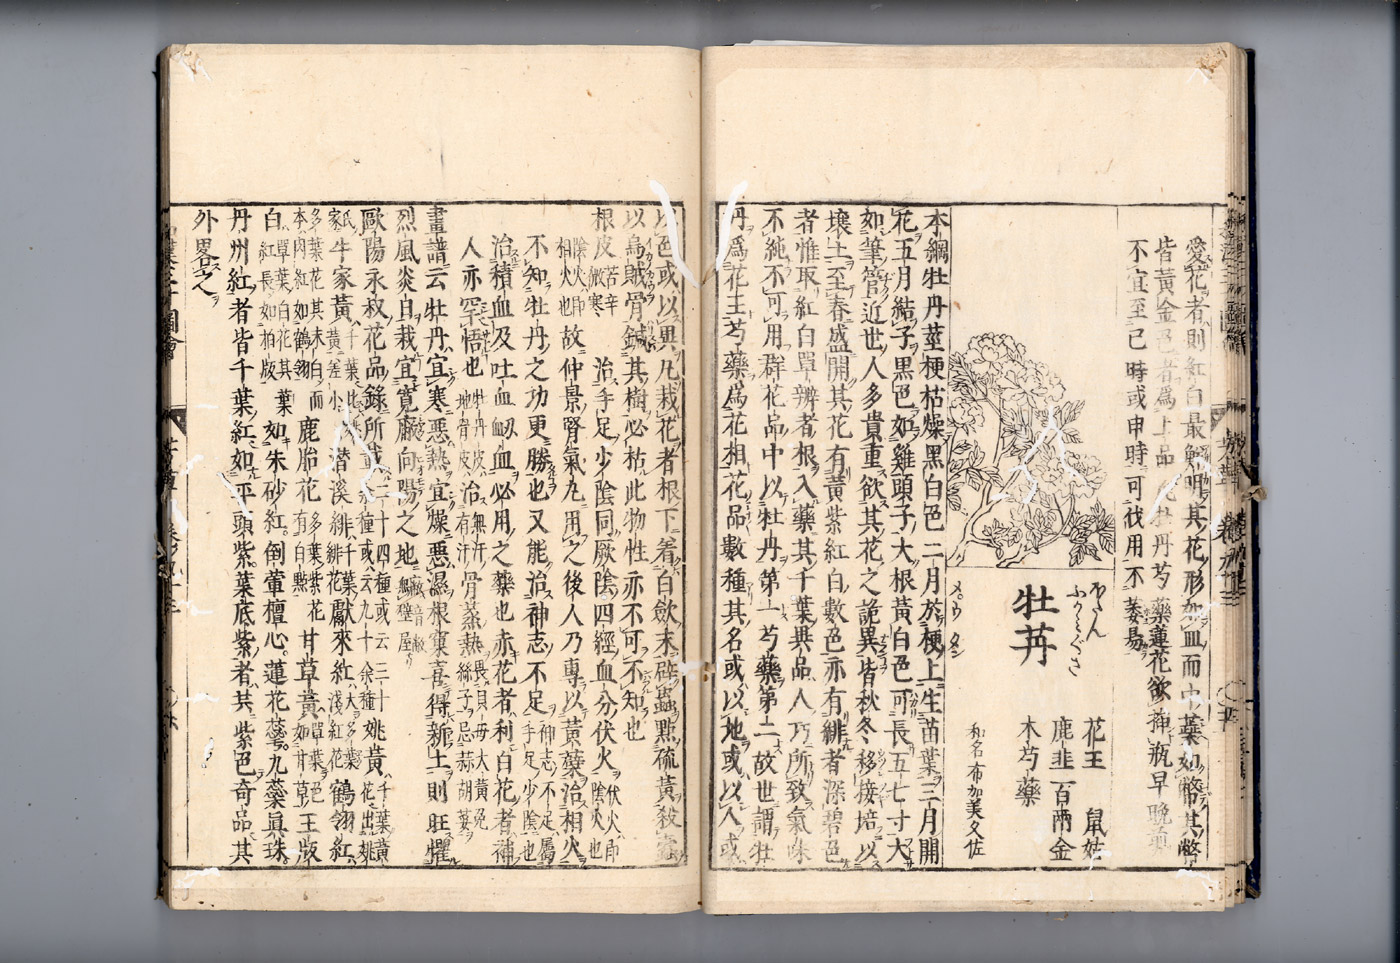 愛花者則紅白最鮮明其花形如血而中蘂如幣其幣
皆黃金色者爲上品 牡丹芍藥蓮花欲揷瓶早晚
不宜至巳時或申時可伐用不萎易
牡丹
ぼたん
ふかみぐさ
メ゚ウ タン
花王 鼠姑
鹿韭 百兩金
木芍藥
和名布加美久佐
本綱牡丹莖梗枯燥黑白色二月於梗上生苗葉三月開
花五月結子黑色如雞頭子大根黃白色可長五七寸大
如筆管近世人多貴重欲其花之詭異皆秋冬移接培以
壤土至春盛開其花有黃紫紅白數色亦有緋者深碧色
者惟取紅白單瓣者根入藥其千葉異品人巧所致氣味
不純不可用群花品中以牡丹第一芍藥第二故世謂牡
丹爲花王芍藥爲花相花品數種其名或以地或以人或
以色或以異凡栽花者根下着白斂末辟蟲點硫黃殺蠹
以烏賊骨鍼其樹必枯此物性亦不可不知也
根皮 苦辛微寒 治手足少陰同厥陰四經血分伏火 伏火即陰火也
陰火即相火也 故仲景腎氣丸用之後人乃專以黃蘗治相火
不知牡丹之功更勝也又能治神志不足 神志不足屬手足少陰也
治積血及吐血衂血必用之藥也赤花者利白花者補
人亦罕悟也 牡丹皮治無汗地骨皮治有汗骨蒸熱 畏貝母大黃兔絲子忌蒜胡荽
畫譜云牡丹宜寒惡熱宜燥惡濕根窠喜得新土則旺懼
烈風炎日栽宜寬廠向陽之地 廠音敞廠壁屋
歐陽永叔花品錄所載二十四種或云三十種或云九十余種 姚黃 千葉黃花出姚氏
牛家黃 千葉比姚黃差小 潛溪緋 千葉緋花 獻來紅 大多葉淺紅花 鶴翎紅
多葉花其末白而本肉紅如鶴翎 鹿胎花 多葉紫花有白點 甘草黃 單葉色如甘草 玉版
白 單葉白花其葉紅長如拍版 如朱砂紅。倒暈檀心。蓮花蕚。九蘂眞珠。
丹州紅者皆千葉紅。如平頭紫。葉底紫者。其紫色奇品其
外畧之